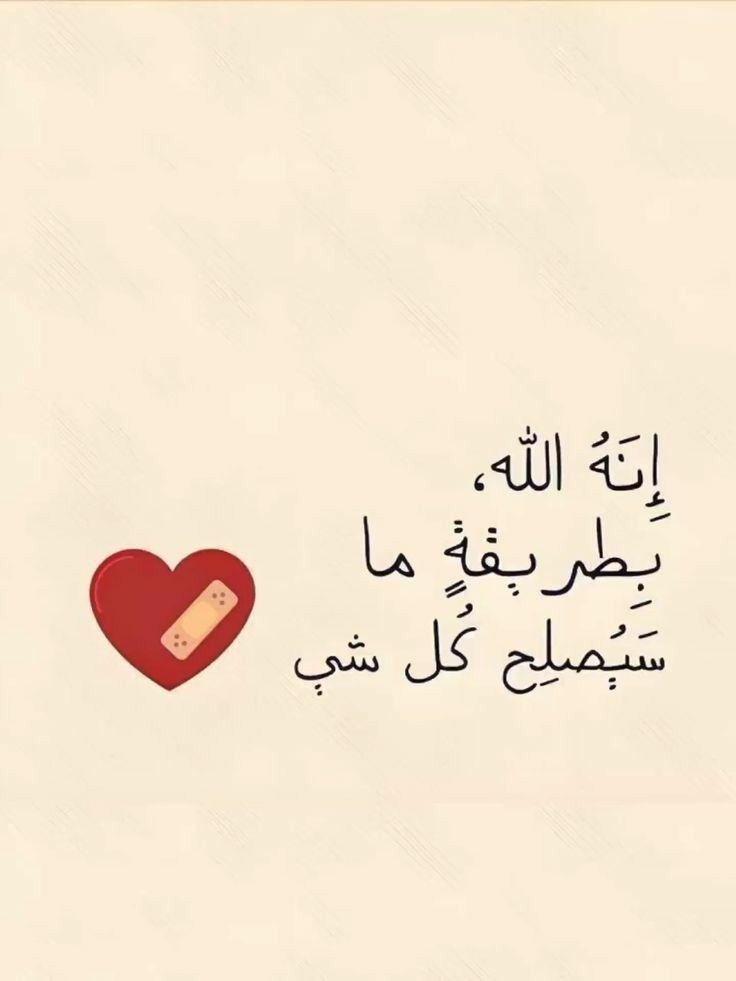 إِنَهُ اللّٰه،
بِطريقةٍ ما
سَيُصلِح كُل شي